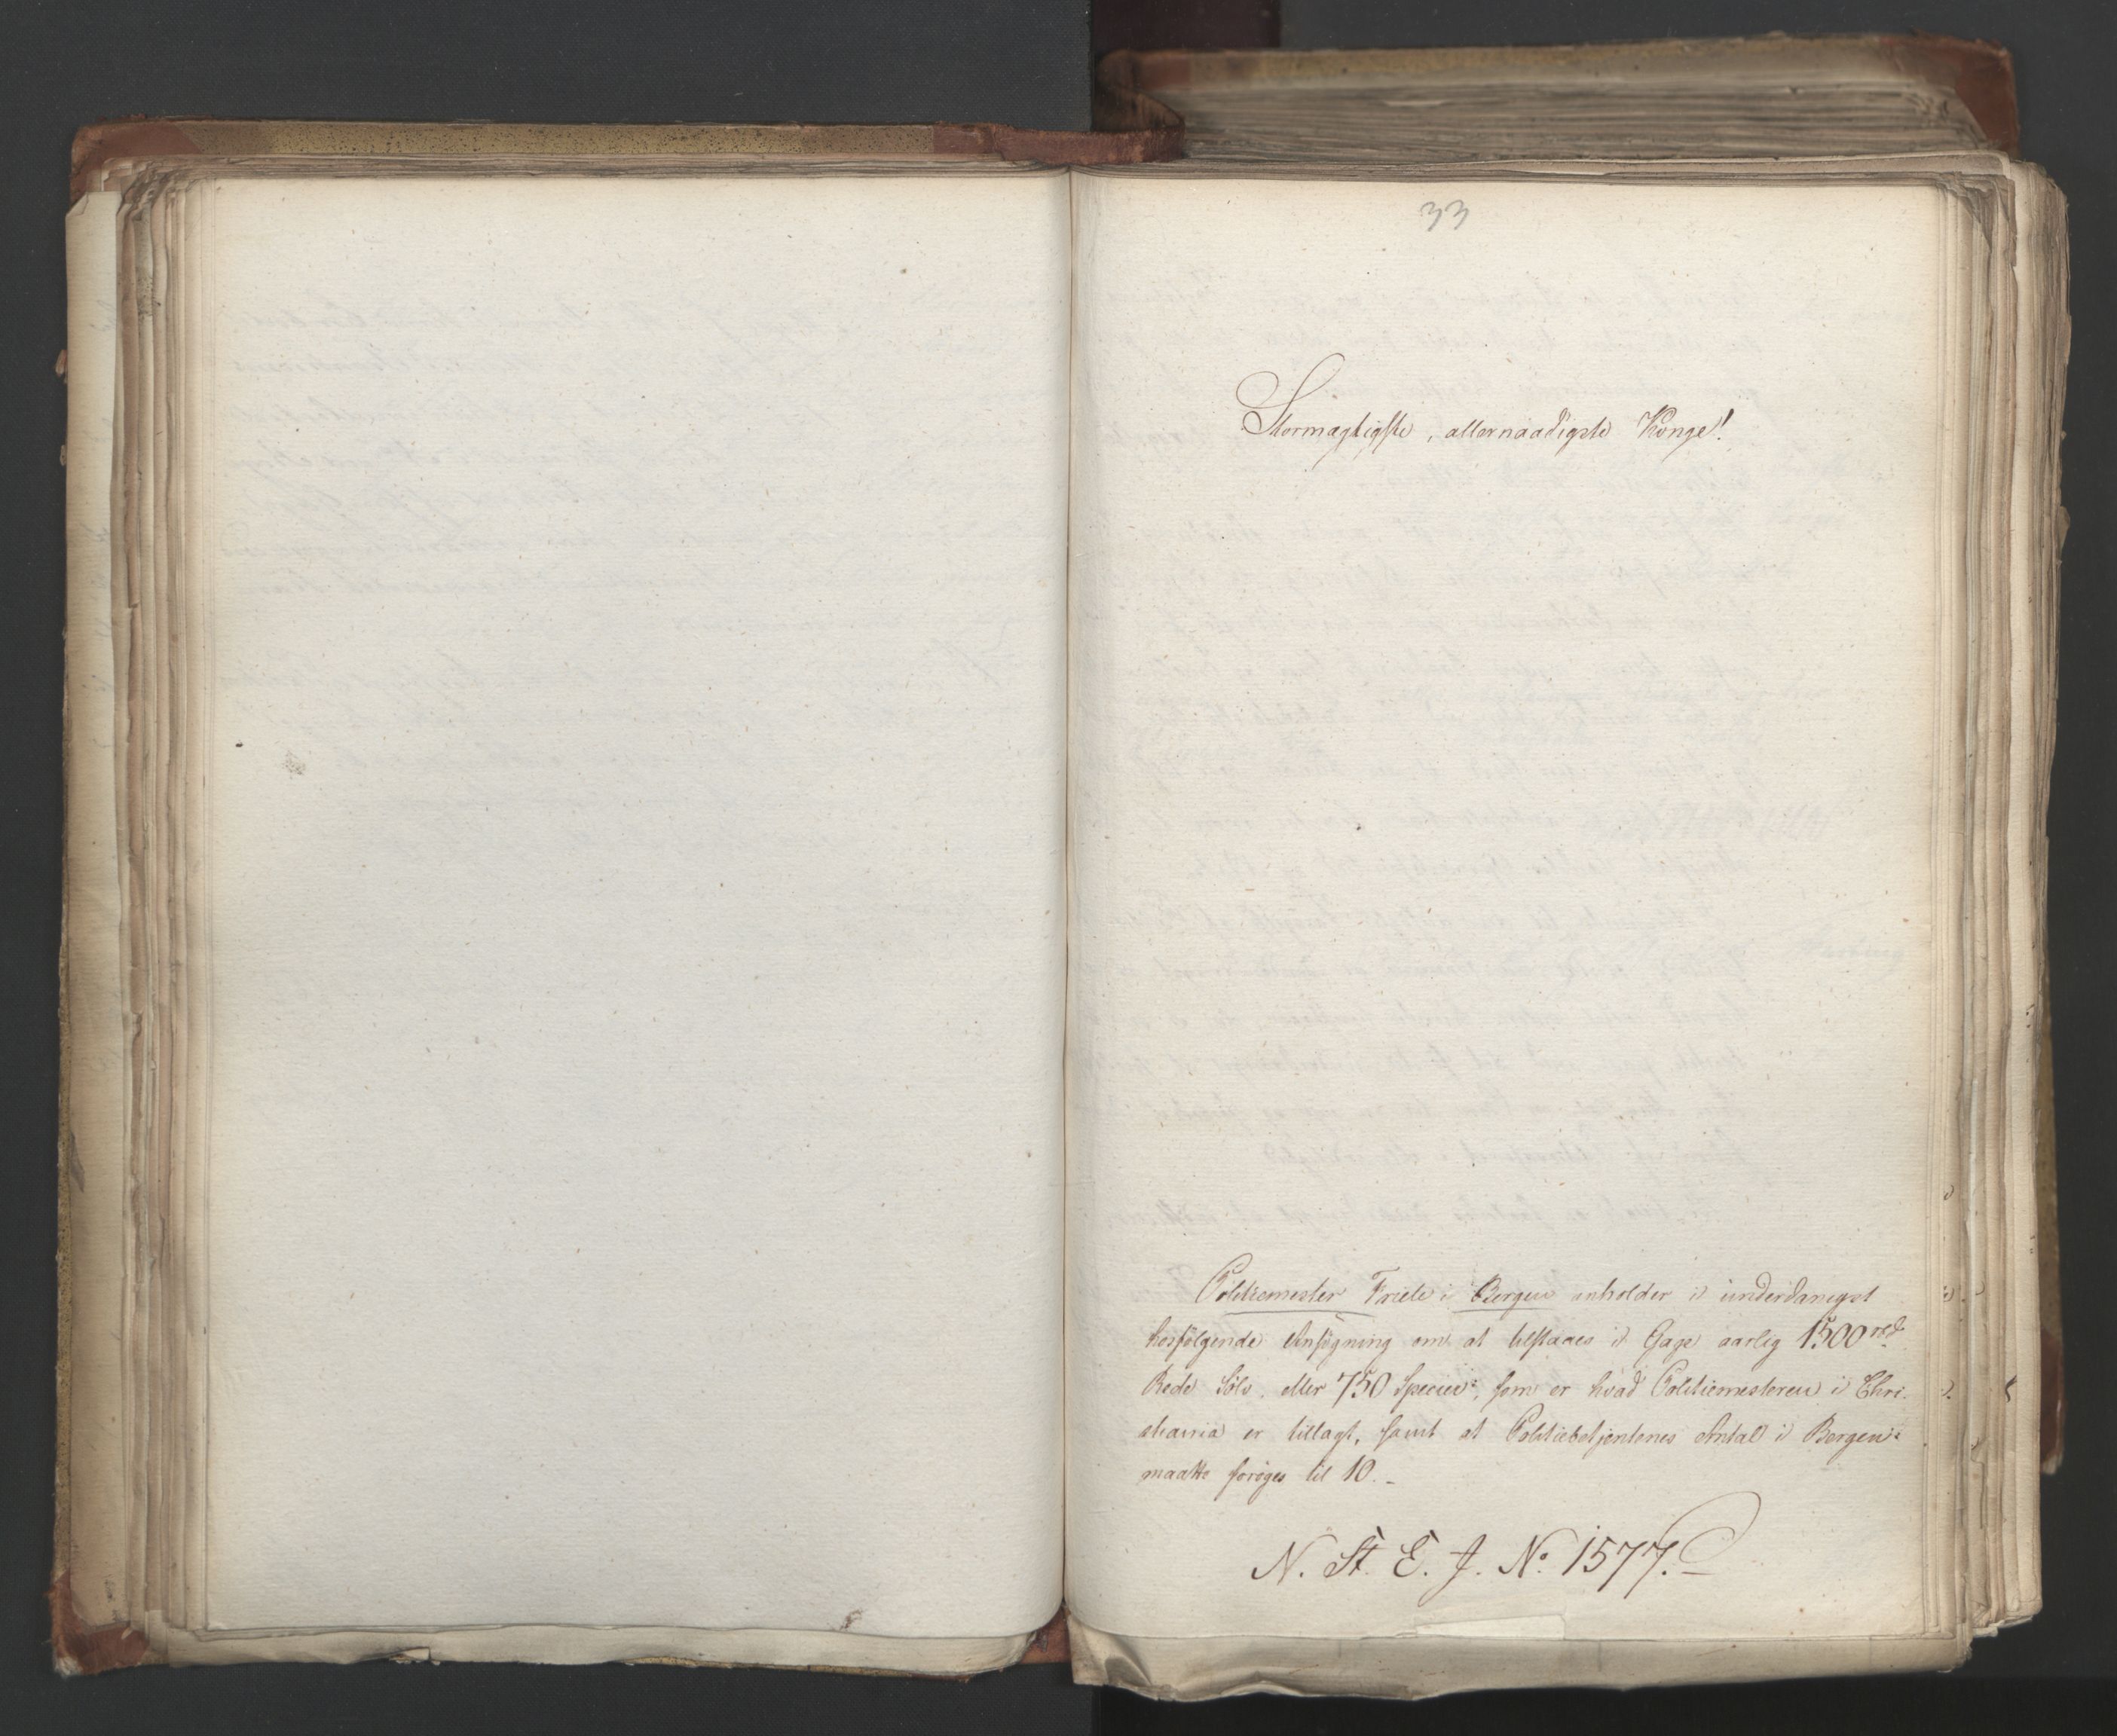 33
Stormægtigste, allernaadigste Konge!
Politiemester Friele i Bergen anholder i underdanigst
hosfølgende Ansøgning om at tilstaaes i Gage aarlig 1500 rbd.
Rede Sølv, eller 750 Specier, som er hvad Politiemesteren i Chri-
stiania er tillagt, samt at Politiebetjentenes Antal i Bergen
maatte forøges til 10.
N. St. E. J. No. 1577.